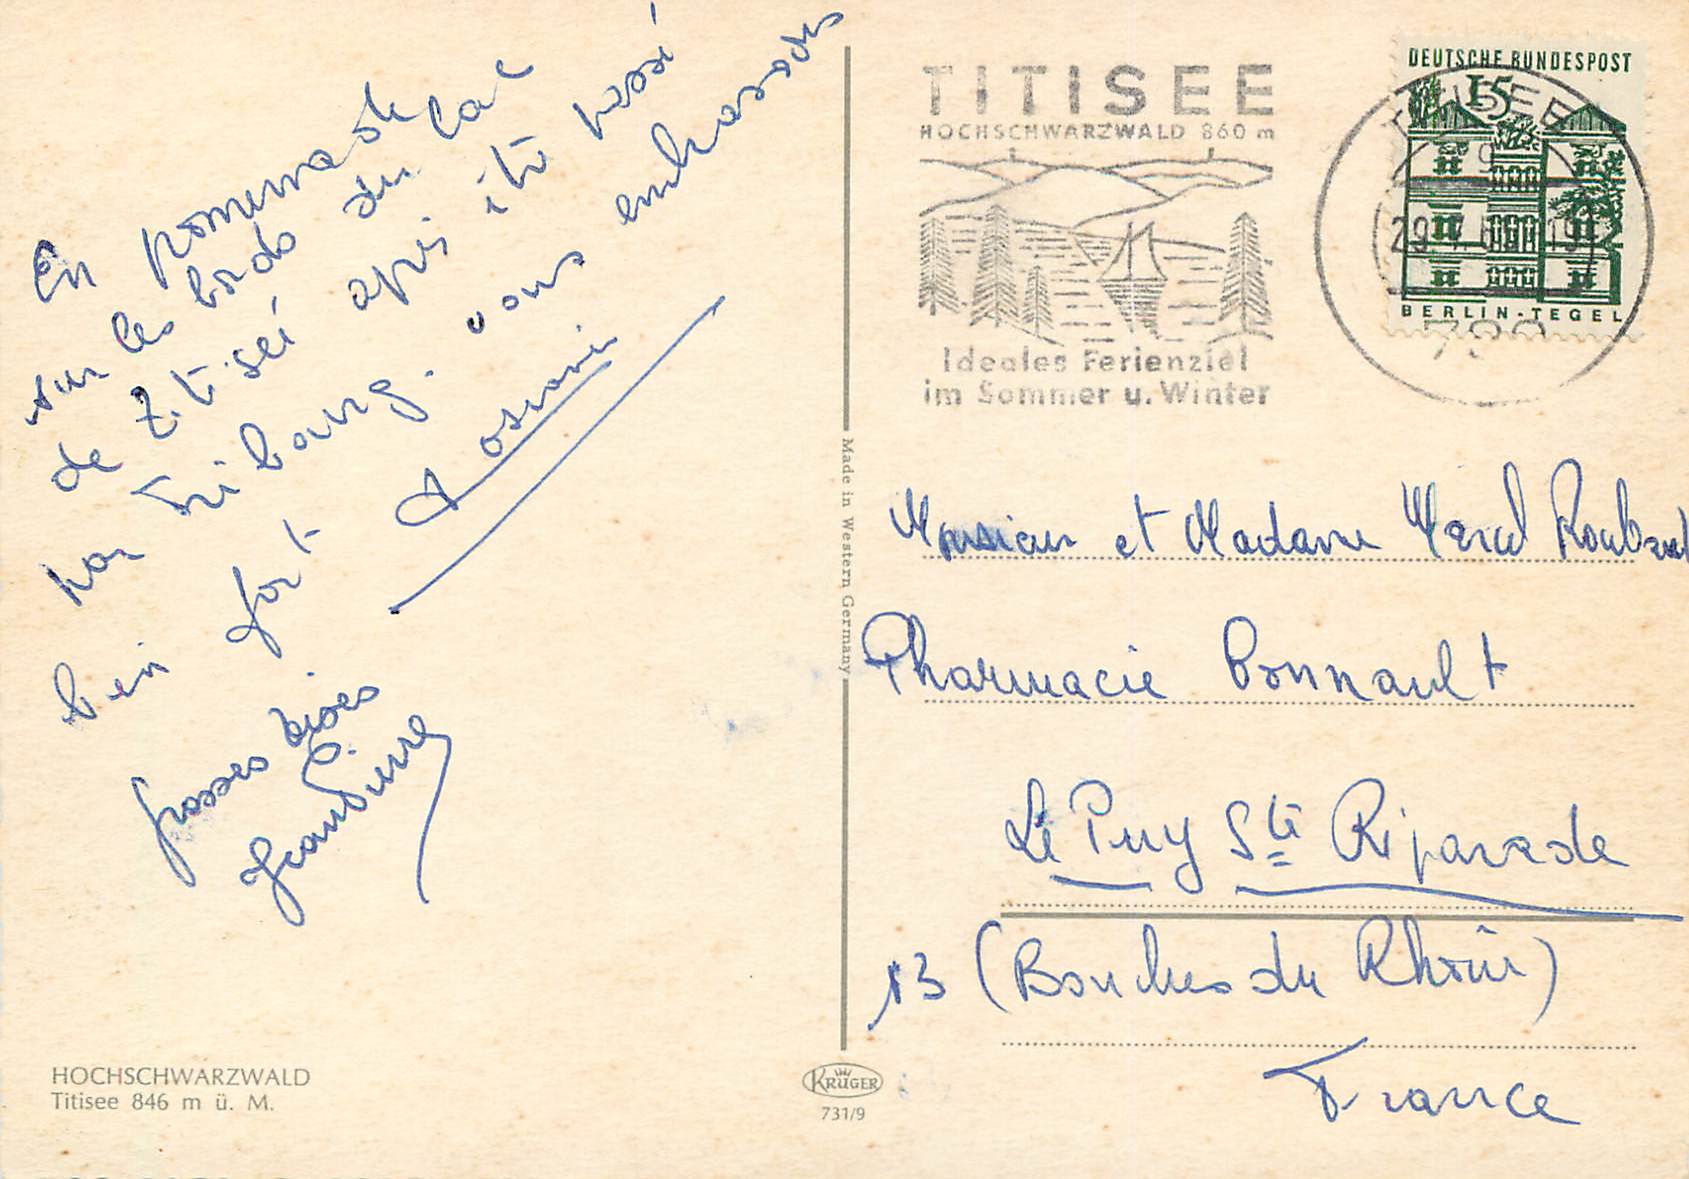 En promenade
sur les bords du lac
de Titiseé après être passé
par Fribourg. vous embrassons
bien fort.
grosses bises
Jean Pierre
TITISEE
HOCHSCHWARZWALD 860 m
Ideales Ferienziel
im Sommer u. Winter
DEUTSCHE BUNDESPOST
15
BERLIN-TEGEL
TITISEE
Made in Western Germany
Monsieur et Madame Marcel
Pharmacie Bonnault
Le Puy Ste Réparade
13 (Bouches du Rhône)
France
HOCHSCHWARZWALD
Titisee 846 m ü. M.
KRÜGER
731/9